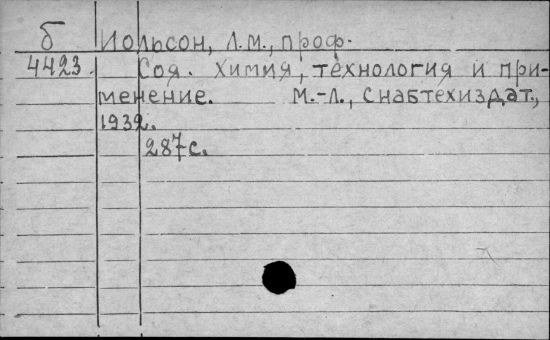 б Иольсон, Л.М., проф.
4423. Соя. Химия, технология и при-
менение. М.-Л., Снабтехиздат,
1932.
287с.